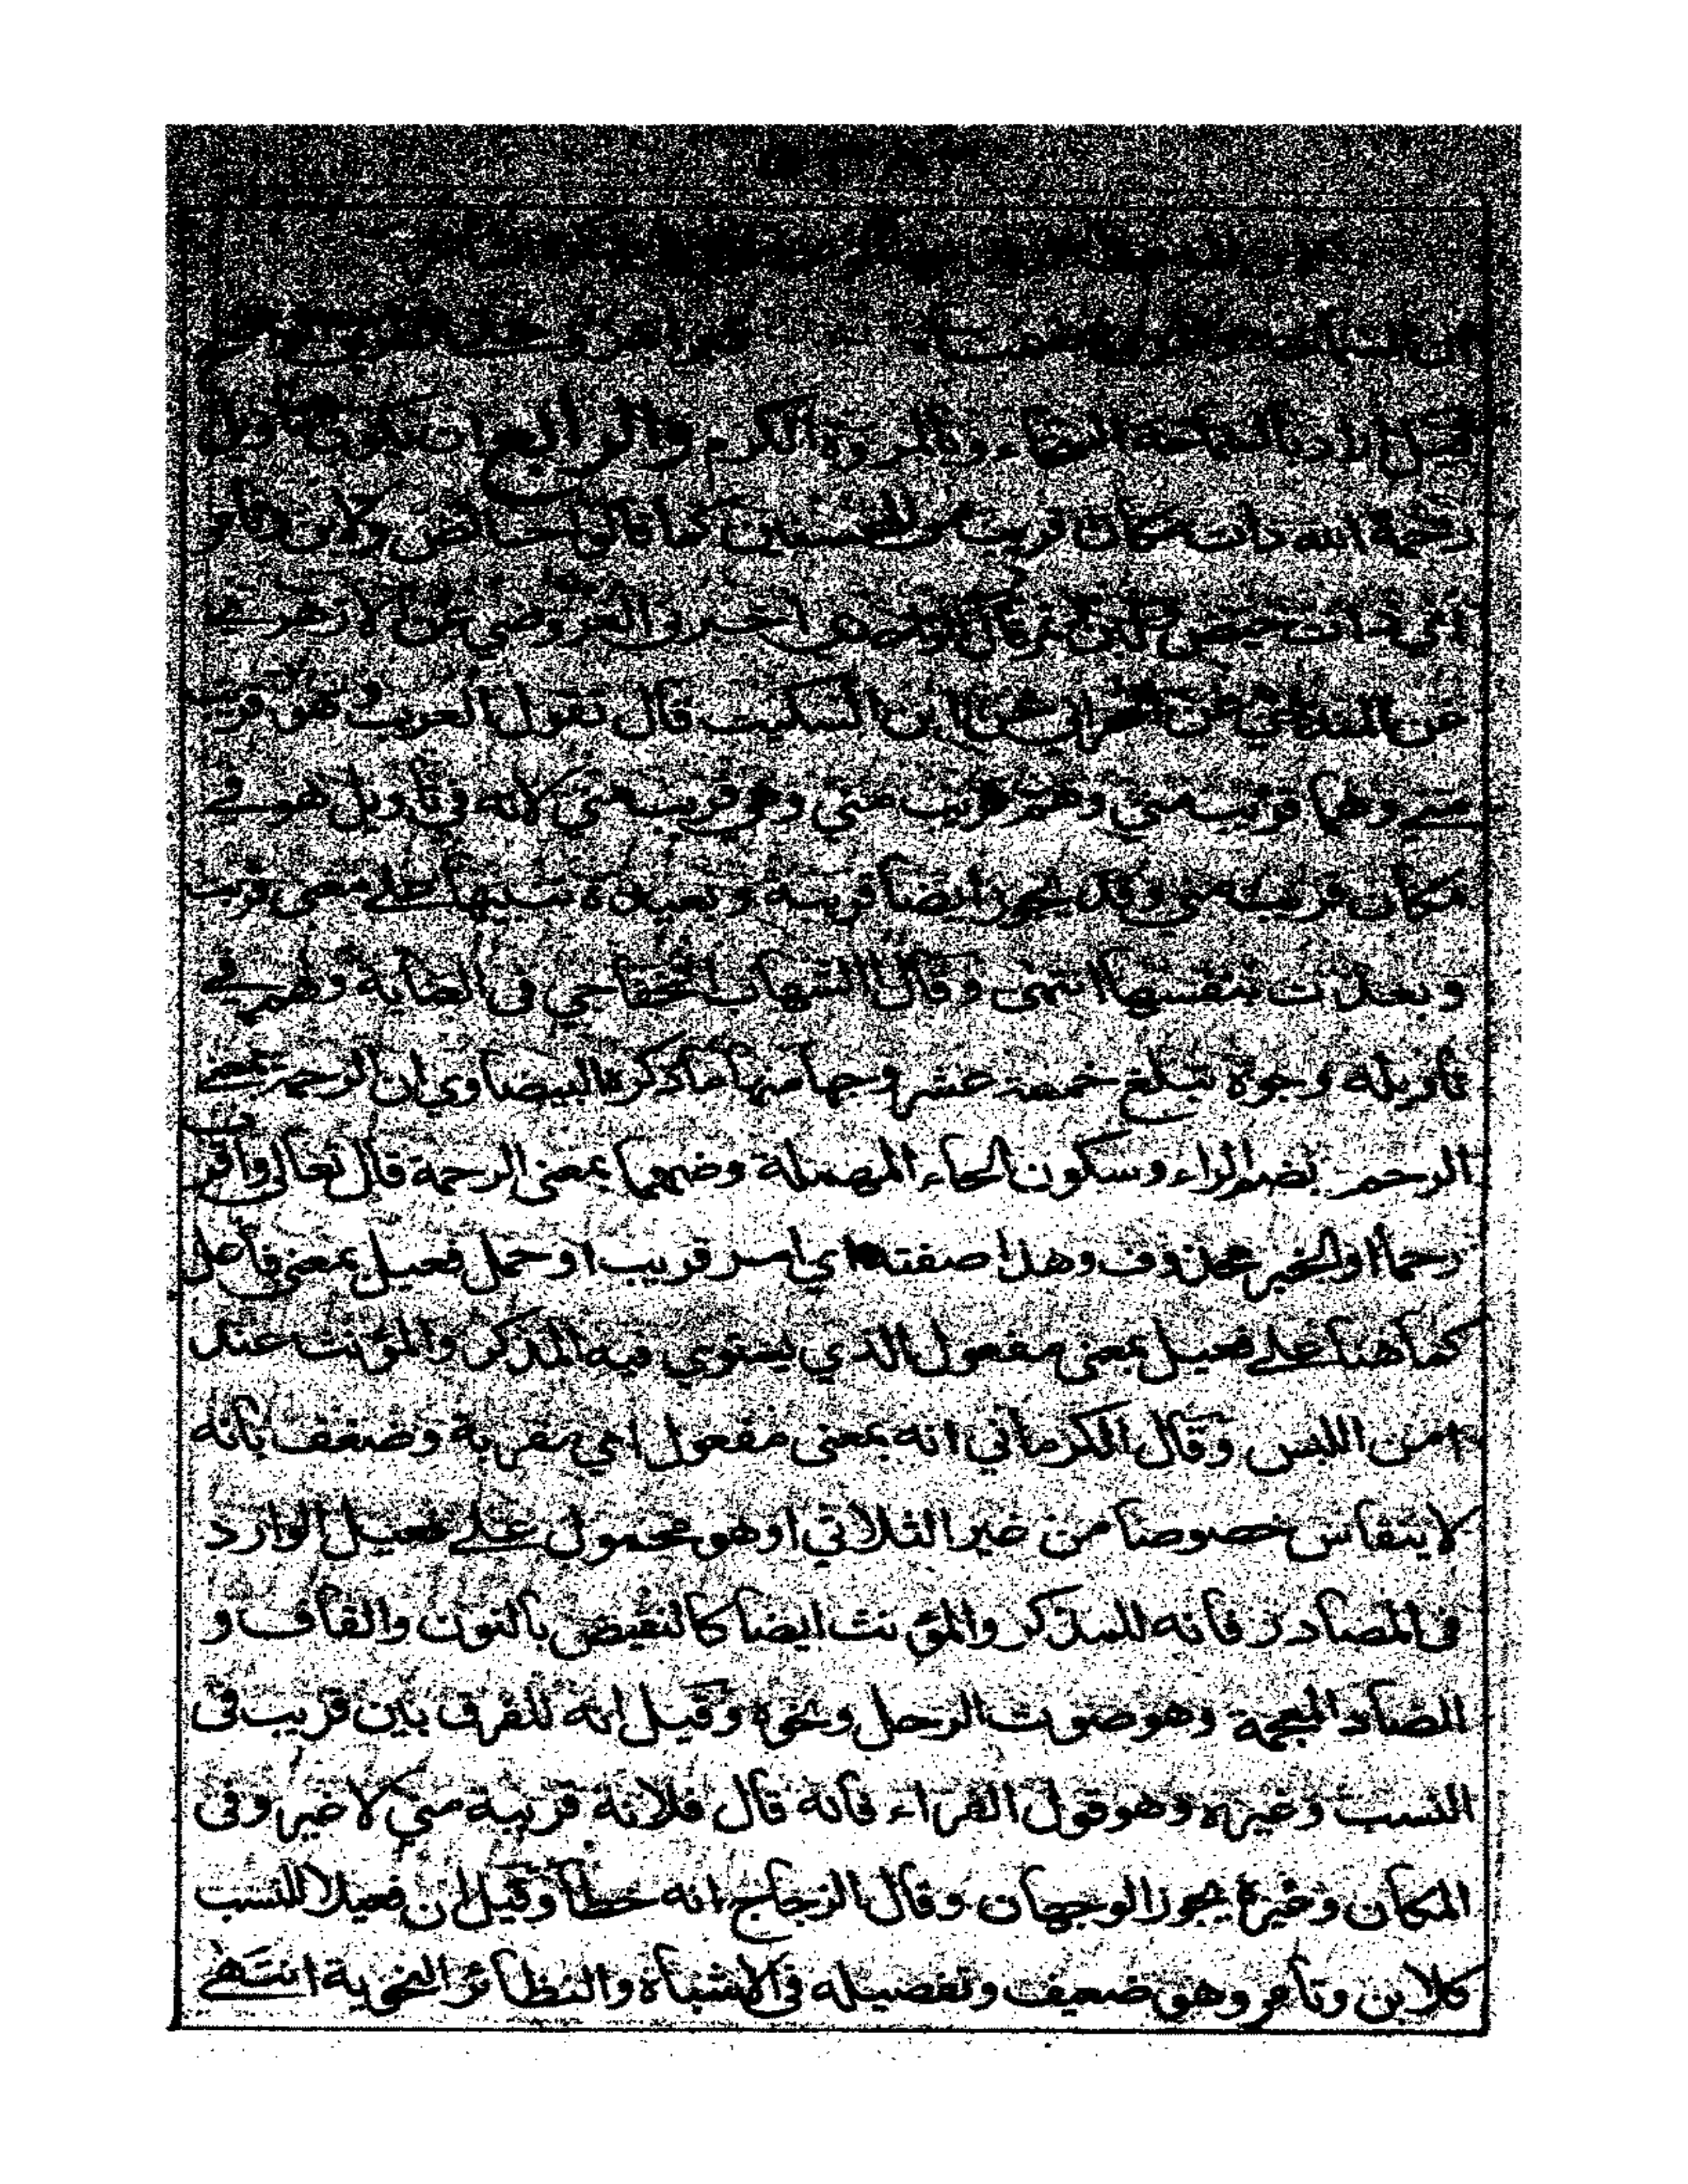 ان السماحة
قيل اراد بالسماحة السخاء وبالمروة الكرم والرابع ان يكون تاويل
رحمة الله ذات مكان قريب من المحسنين كما قالوا حائض ولابن وتامر
اي ذات حيض ولبن وتمر قال الواحدي اخبرني العروضي عن الازهري
عن المنذري عن الحراني عن ابن السكيت قال تقول العرب هو قريب
منے وهما قريب مني وهم قريب مني وهي قريب مني لانه في تأويل هو في
مكان قريب مني وقد يجوز ايضا قريبة وبعيدة تنبيها علے معنى قربت
وبعدت بنفسها انتهى وقال الشهاب الخفاجي في العناية ولهم في
تأويله وجوه تبلغ خمسة عشر وجها منها ما ذكره البيضاوي ان الرحمة بمعنے
الرحم بضم الراء وسكون الحاء المهملة وضمها بمعنى الرحمة قال تعالى واقرب
رحما او الخبر محذوف وهذا صفته اي امر قريب او حمل فعيل بمعنى فاعل
كما هنا علے فعيل بمعنى مفعول الذي يستوي فيه المذكر والمؤنث عند
امن اللبس وقال الكرماني انه بمعنى مفعول اي مقربة وضعف بانه
لا ينقاس خصوصا من غير الثلاثي او هو محمول علے فعيل الوارد
في المصادر فانه للمذكر والمؤنث ايضا كالنقيض بالنون والقاف و
الضاد المعجمة وهو صوت الرحل ونحوه وقيل انه للفرق بين قريب في
النسب وغيره وهو قول الفراء فانه قال فلانة قريبة مني لا غير وفى
المكان وغيره يجوز الوجهان وقال الزجاج انه خطأ وقيل ان فعيلا للنسب
كلابن وتأمر وهو ضعيف وتفصيله في الاشباه والنظائر النحوية انتهے